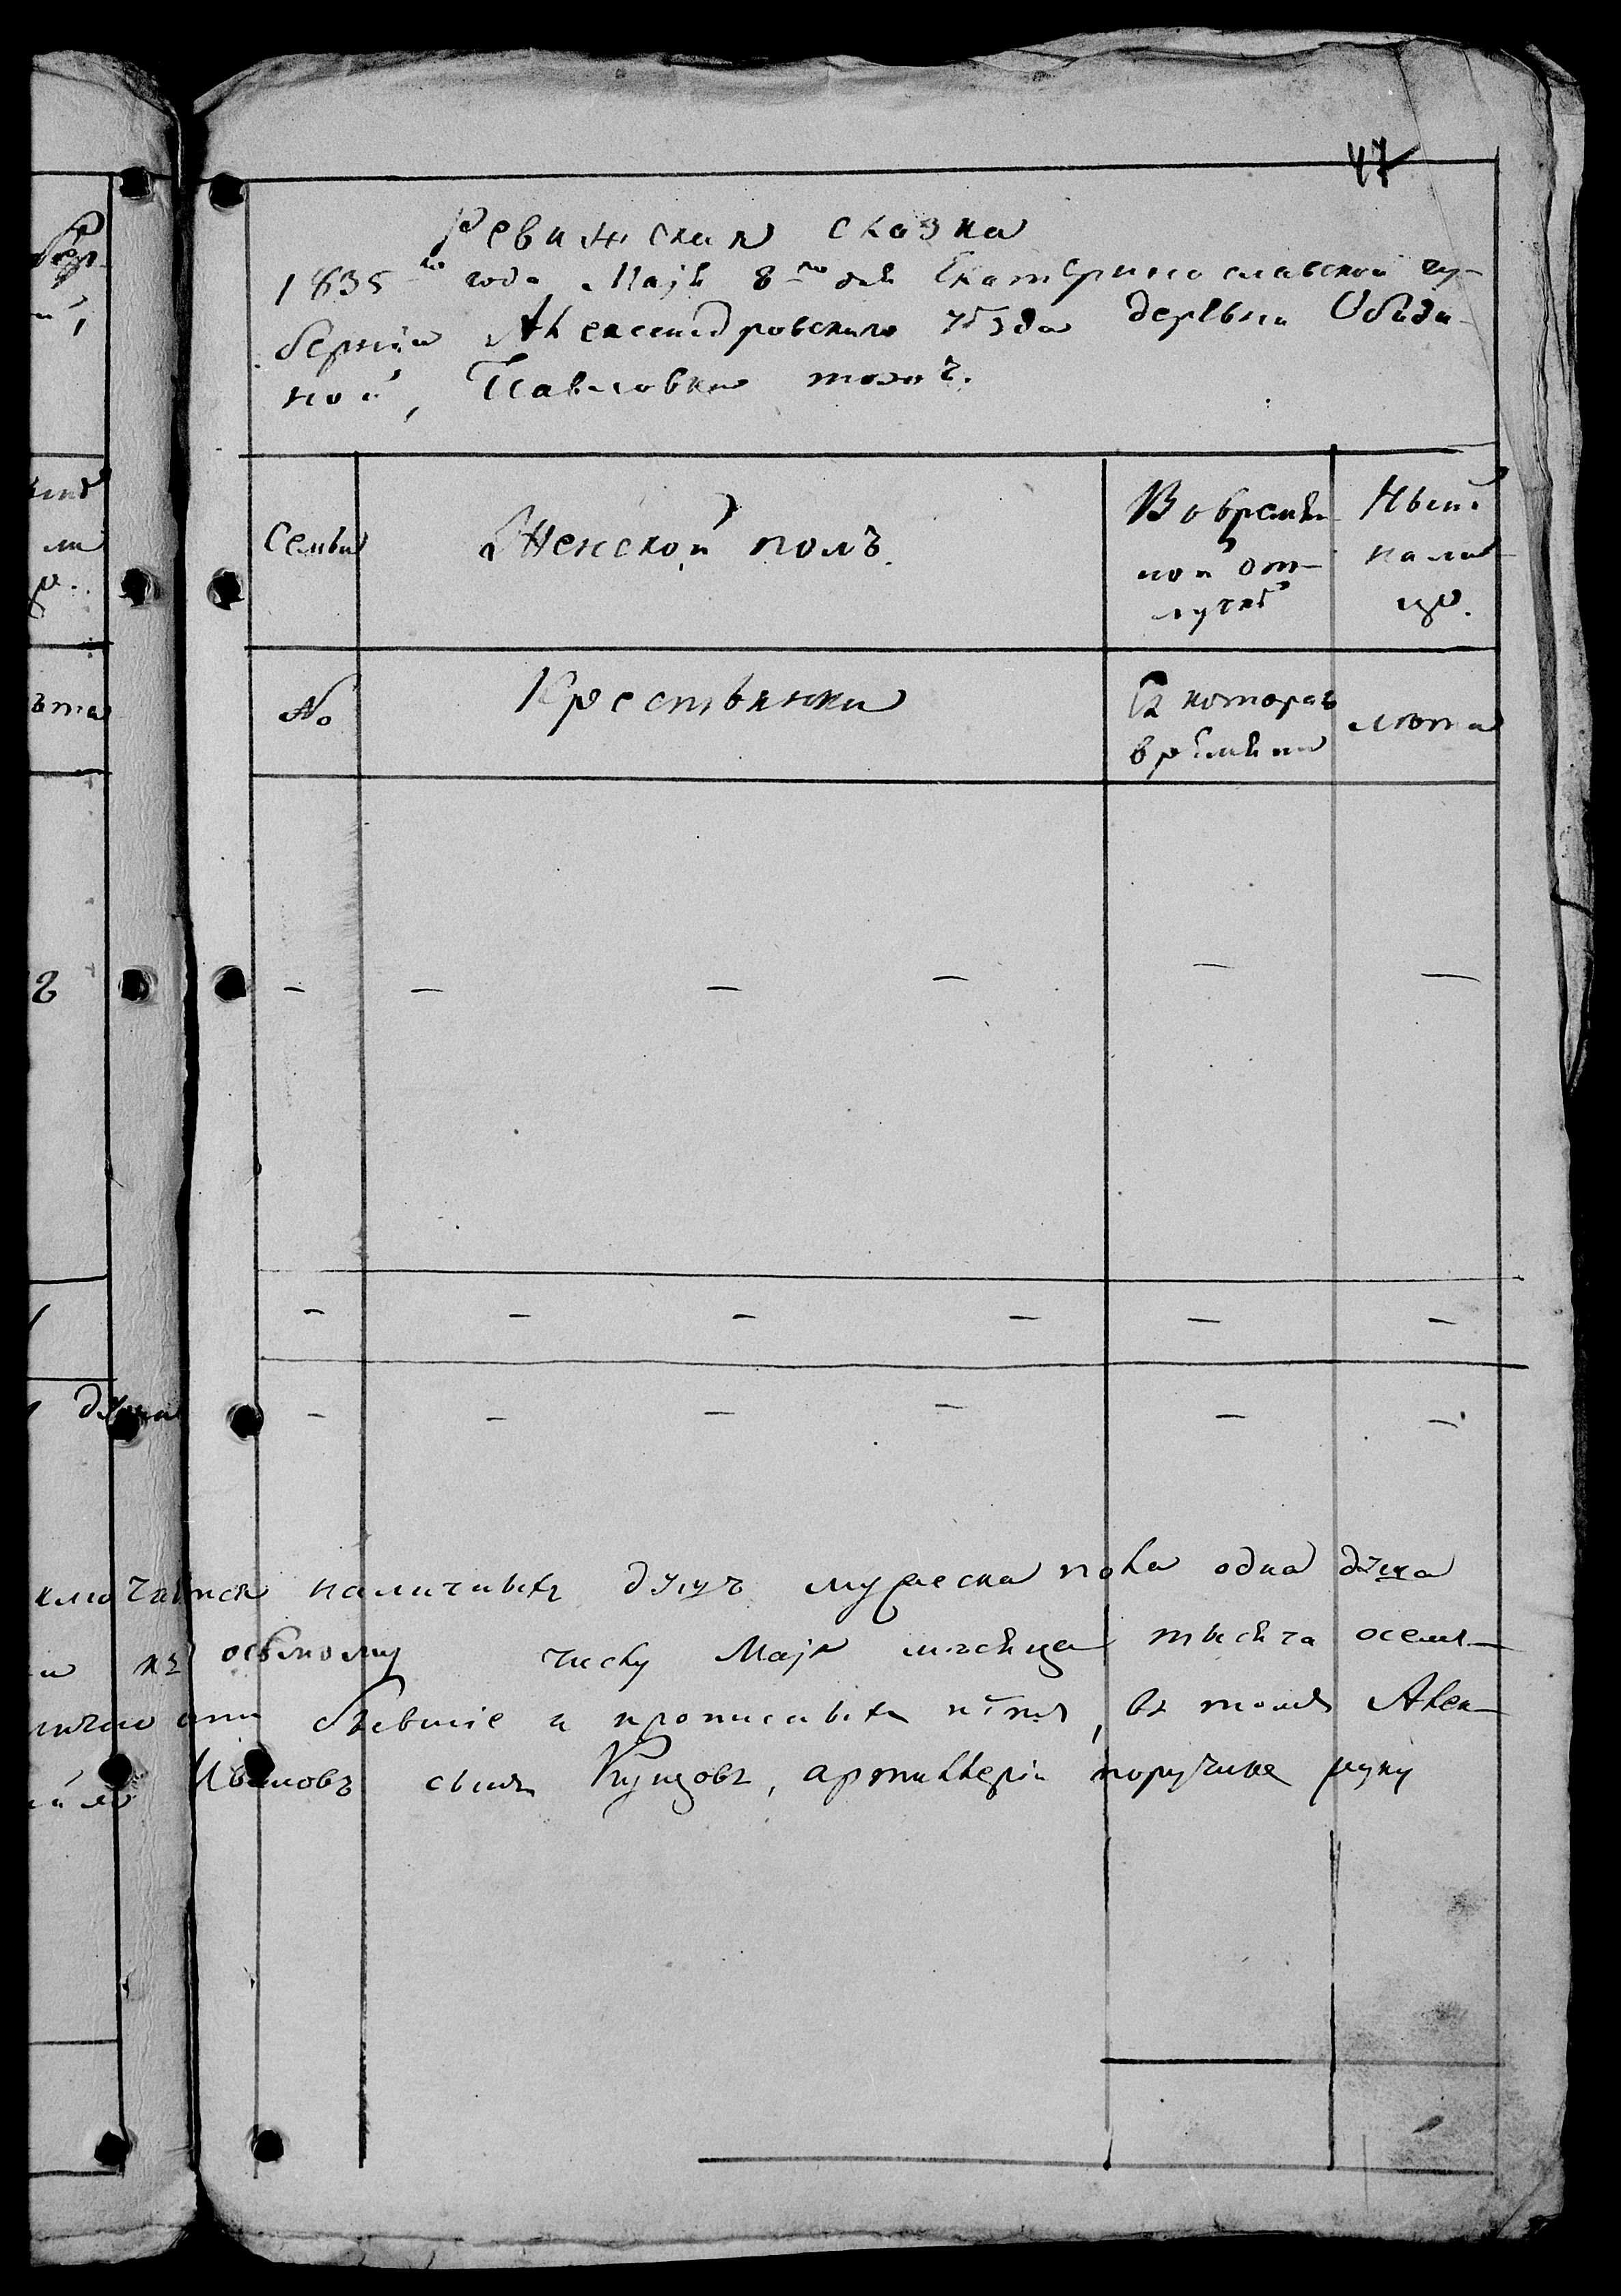 47
Ревижская сказка
1835го года Маія 8го дня Екатеринославской гу-
берніи Александровского уѣзда деревни Обиди-
ной, Павловка тожъ.
Семьи
Женской полъ.
Во времян-
ной от-
лучкѣ
Нынѣ
на ли-
цо.
№
Крестьянки
Съ которого
времени
лѣта
ключается наличныхъ душъ мужеска пола одна душа
и къ осьмому числу Маія мѣсяца тысяча осемъ-
бывшіе и прописныхъ нѣтъ, въ томъ Алек-
Ивановъ сынъ Купцовъ, артиллеріи поручикъ руку